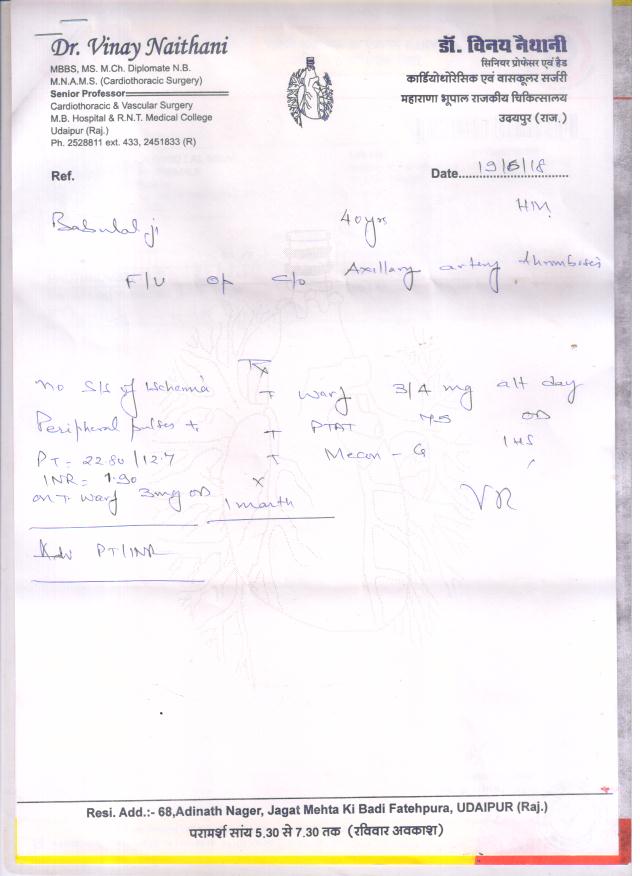 Dr. Vinay Naithani
MBBS, MS. M.Ch. Diplomate N.B.
M.N.A.M.S. (Cardiothoracic Surgery)
Senior Professor
Cardiothoracic & Vascular Surgery
M.B. Hospital & R.N.T. Medical College
Udaipur (Raj.)
Ph. 2528811 ext. 433, 2451833 (R)
डॉ. विनय नैथानी
सिनियर प्रोफेसर एवं हैड
कार्डियोथोरेसिक एवं वासकूलर सर्जरी
महाराणा भूपाल राजकीय चिकित्सालय
उदयपुर (राज.)
Ref.
Date 19/6/18
HM
Babulal ji 40 yrs
F/U of c/o Axillary artery thrombosis
Rx
No S/s of Ischemia
T Warf 3/4 mg alt day
Peripheral pulses +
T 75 OD
PT = 22.80 / 12.7
T Mecon - G
INR = 1.90
x
on T. Warf 3mg OD
1 month
VR
Adv PT/INR
Resi. Add.:- 68,Adinath Nager, Jagat Mehta Ki Badi Fatehpura, UDAIPUR (Raj.)
परामर्श सांय 5.30 से 7.30 तक (रविवार अवकाश)